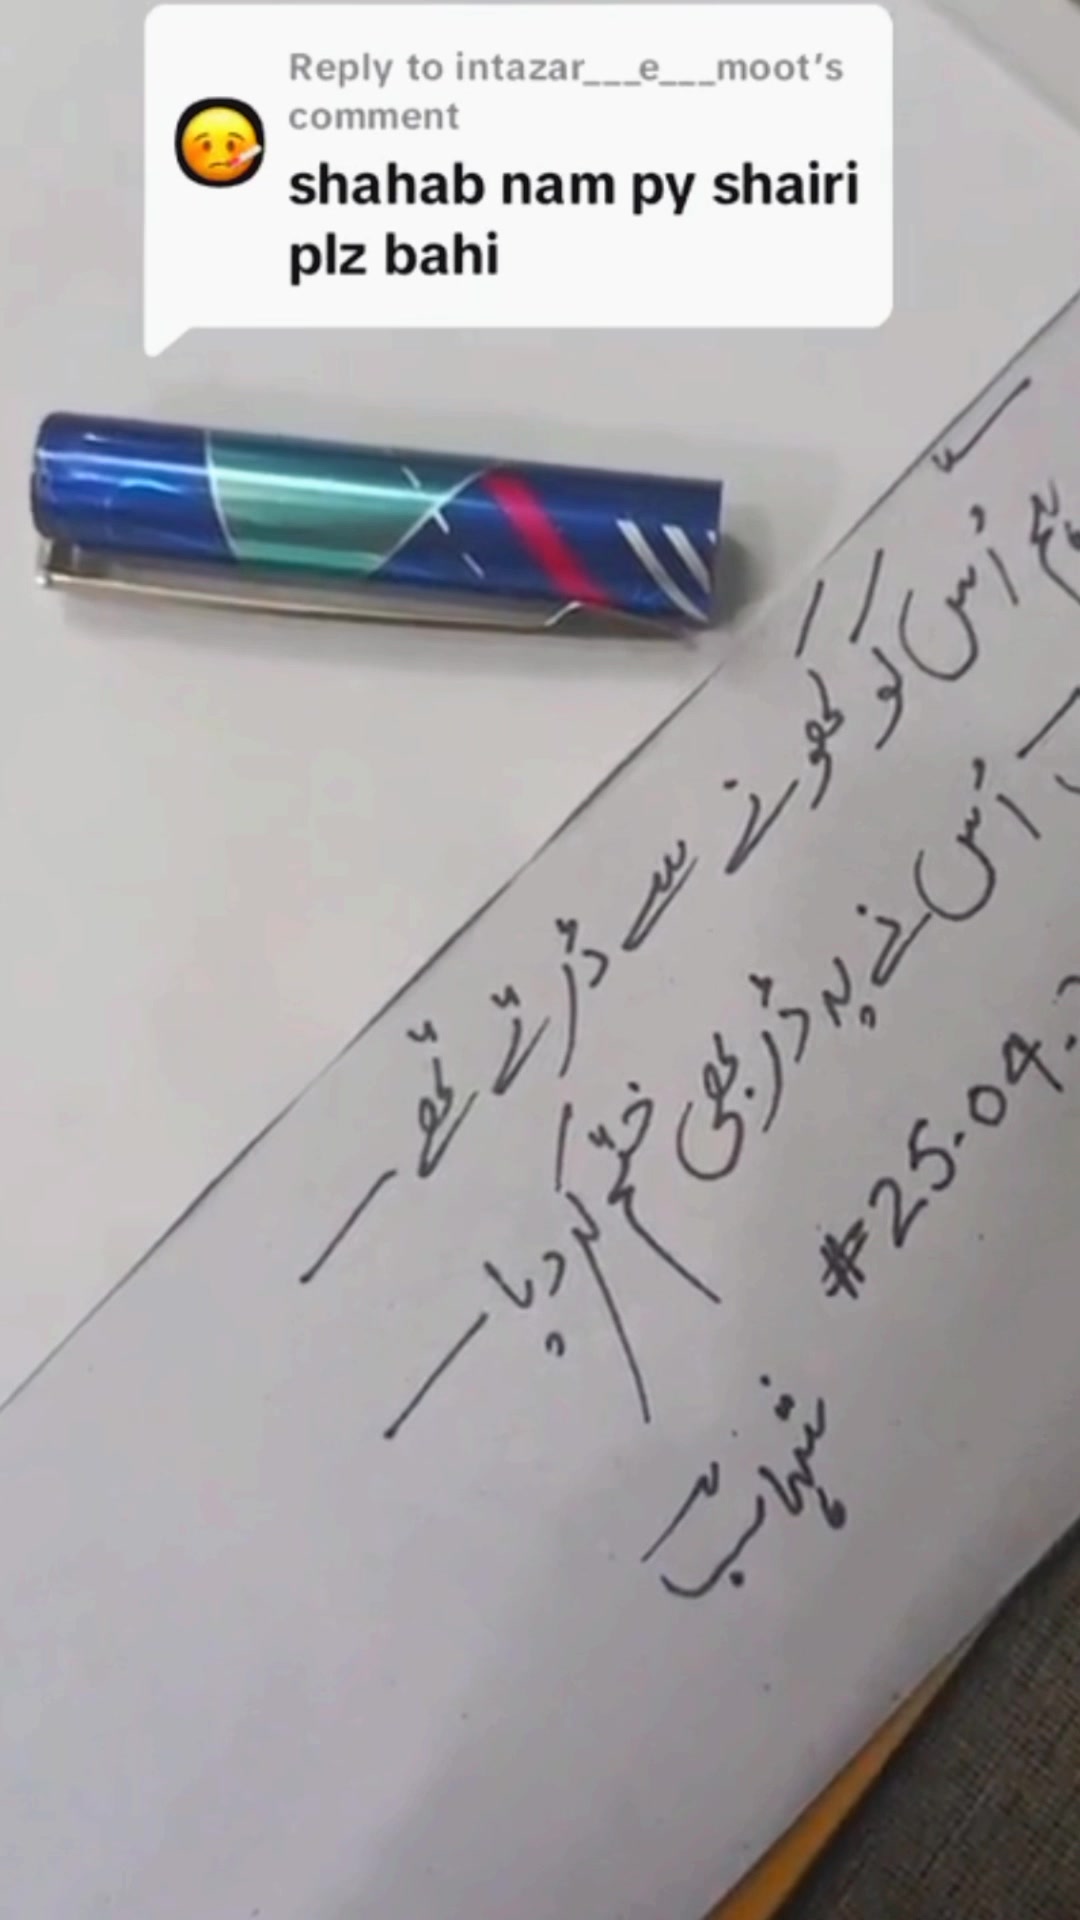 Reply to intazar___e___moot's
comment
shahab nam py shairi
plz bahi
اُس کو کھونے سے ڈرتے تھے
اُس نے یہ ڈر بھی ختم کر دیا
#25.04.
شہاب